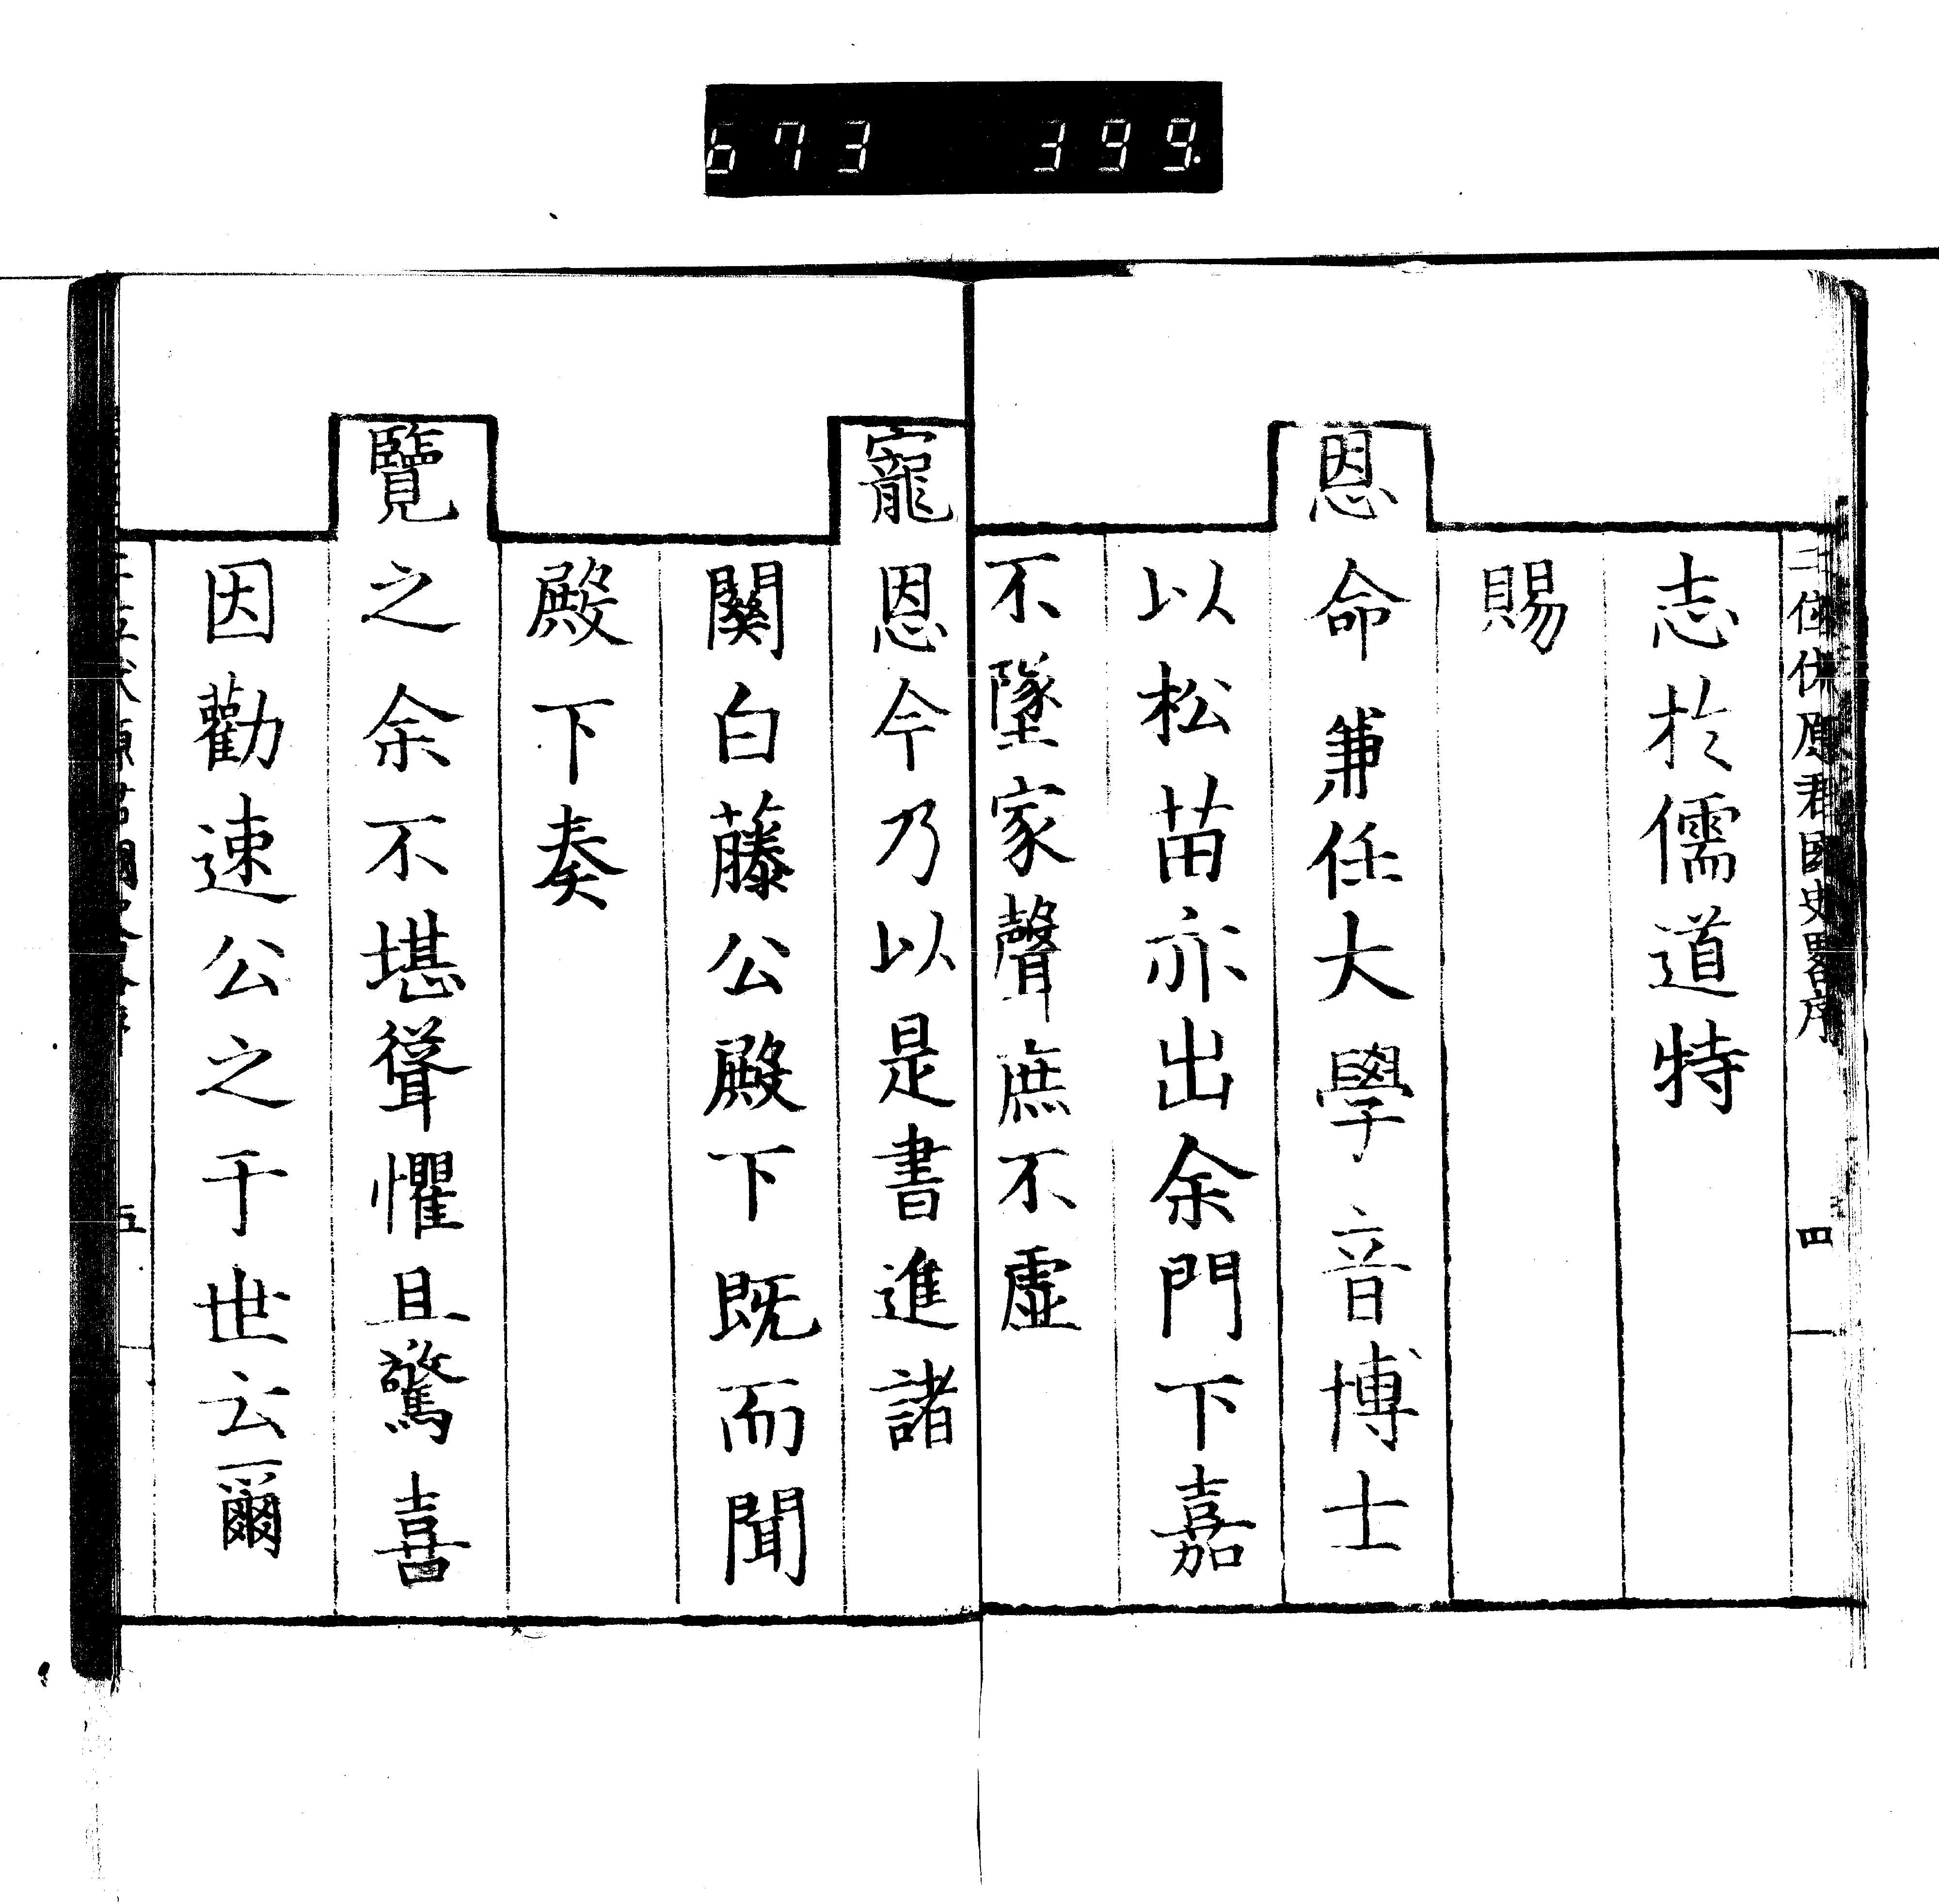 673 399.
志於儒道特
賜
恩命兼任大學音博士
以松苗亦出余門下嘉
不墜家聲庶不虛
寵恩今乃以是書進諸
關白藤公殿下既而聞
殿下奏
覽之余不堪聳懼且驚喜
因勸速公之于世云爾
四
五